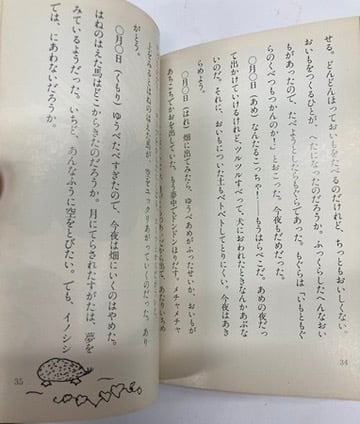 せる。どんどんほっておいもをたべるのだけれど、ちっともおいしくない。
おいもをつくるひとが、へたになったのだろうか。ふっくらしたへんなおい
もがあったので、たべようとしたらもぐらであった。もぐらは「いもともぐ
らのくべつもつかんのか！」とおこった。今夜もだめだった。
〇月〇日（あめ）なんたるこっちゃ――もうはらぺこだ。あめの夜だっ
て出かけていけるけれど、ツルツルすべって、犬におわれたときなんかあぶな
いのだ。それに、おいもについた土もベトベトしてとりにくい。今夜はあき
らめよう。
〇月〇日（はれ）畑に出てみたら、ゆうべあめがふったせいか、おいもが
あちこちでかおを出していた。もう夢中でドンドンほりだす。メチャメチャ
34
がとう。
〇月〇日（くもり）ゆうべたべすぎたので、今夜は畑にいくのはやめた。
はねのはえた馬はどこからきたのだろうか。月にてらされたすがたは、夢を
みているようだった。いちど、あんなふうに空をとびたい。でも、イノシシ
では、にあわないだろうか。
35